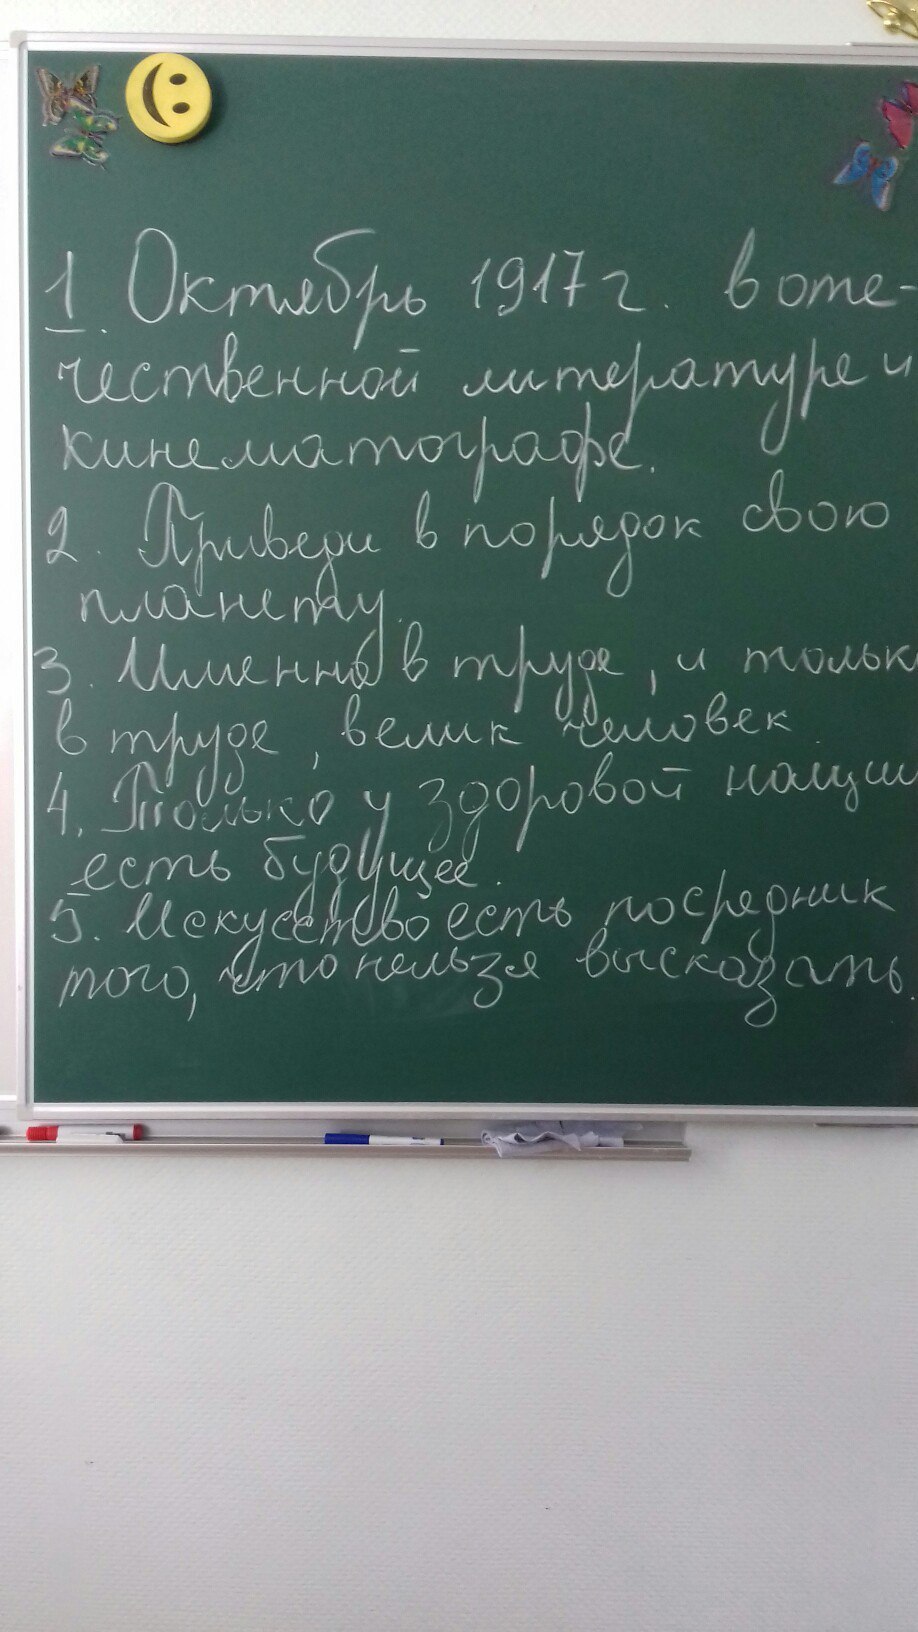 1. Октябрь 1917 г. в оте-
чественной литературе и
кинематографе.
2. Приведи в порядок свою
планету.
3. Именно в труде, и тольк
в труде, велик человек.
4. Только у здоровой нации
есть будущее.
5. Искусство есть посредник
того, что нельзя высказать.